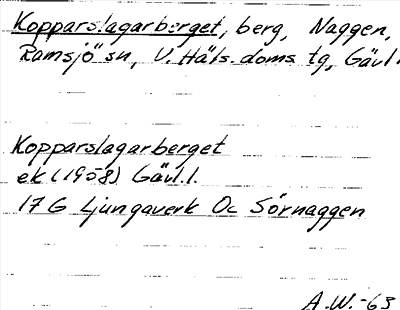 Kopparslagarberget, berg, Naggen,
Ramsjö sn, V. Häls. doms tg, Gävl.
Kopparslagarberget
ek (1958) Gävl.l.
17 G Ljungaverk Oc Sörnaggen
A.W. -63